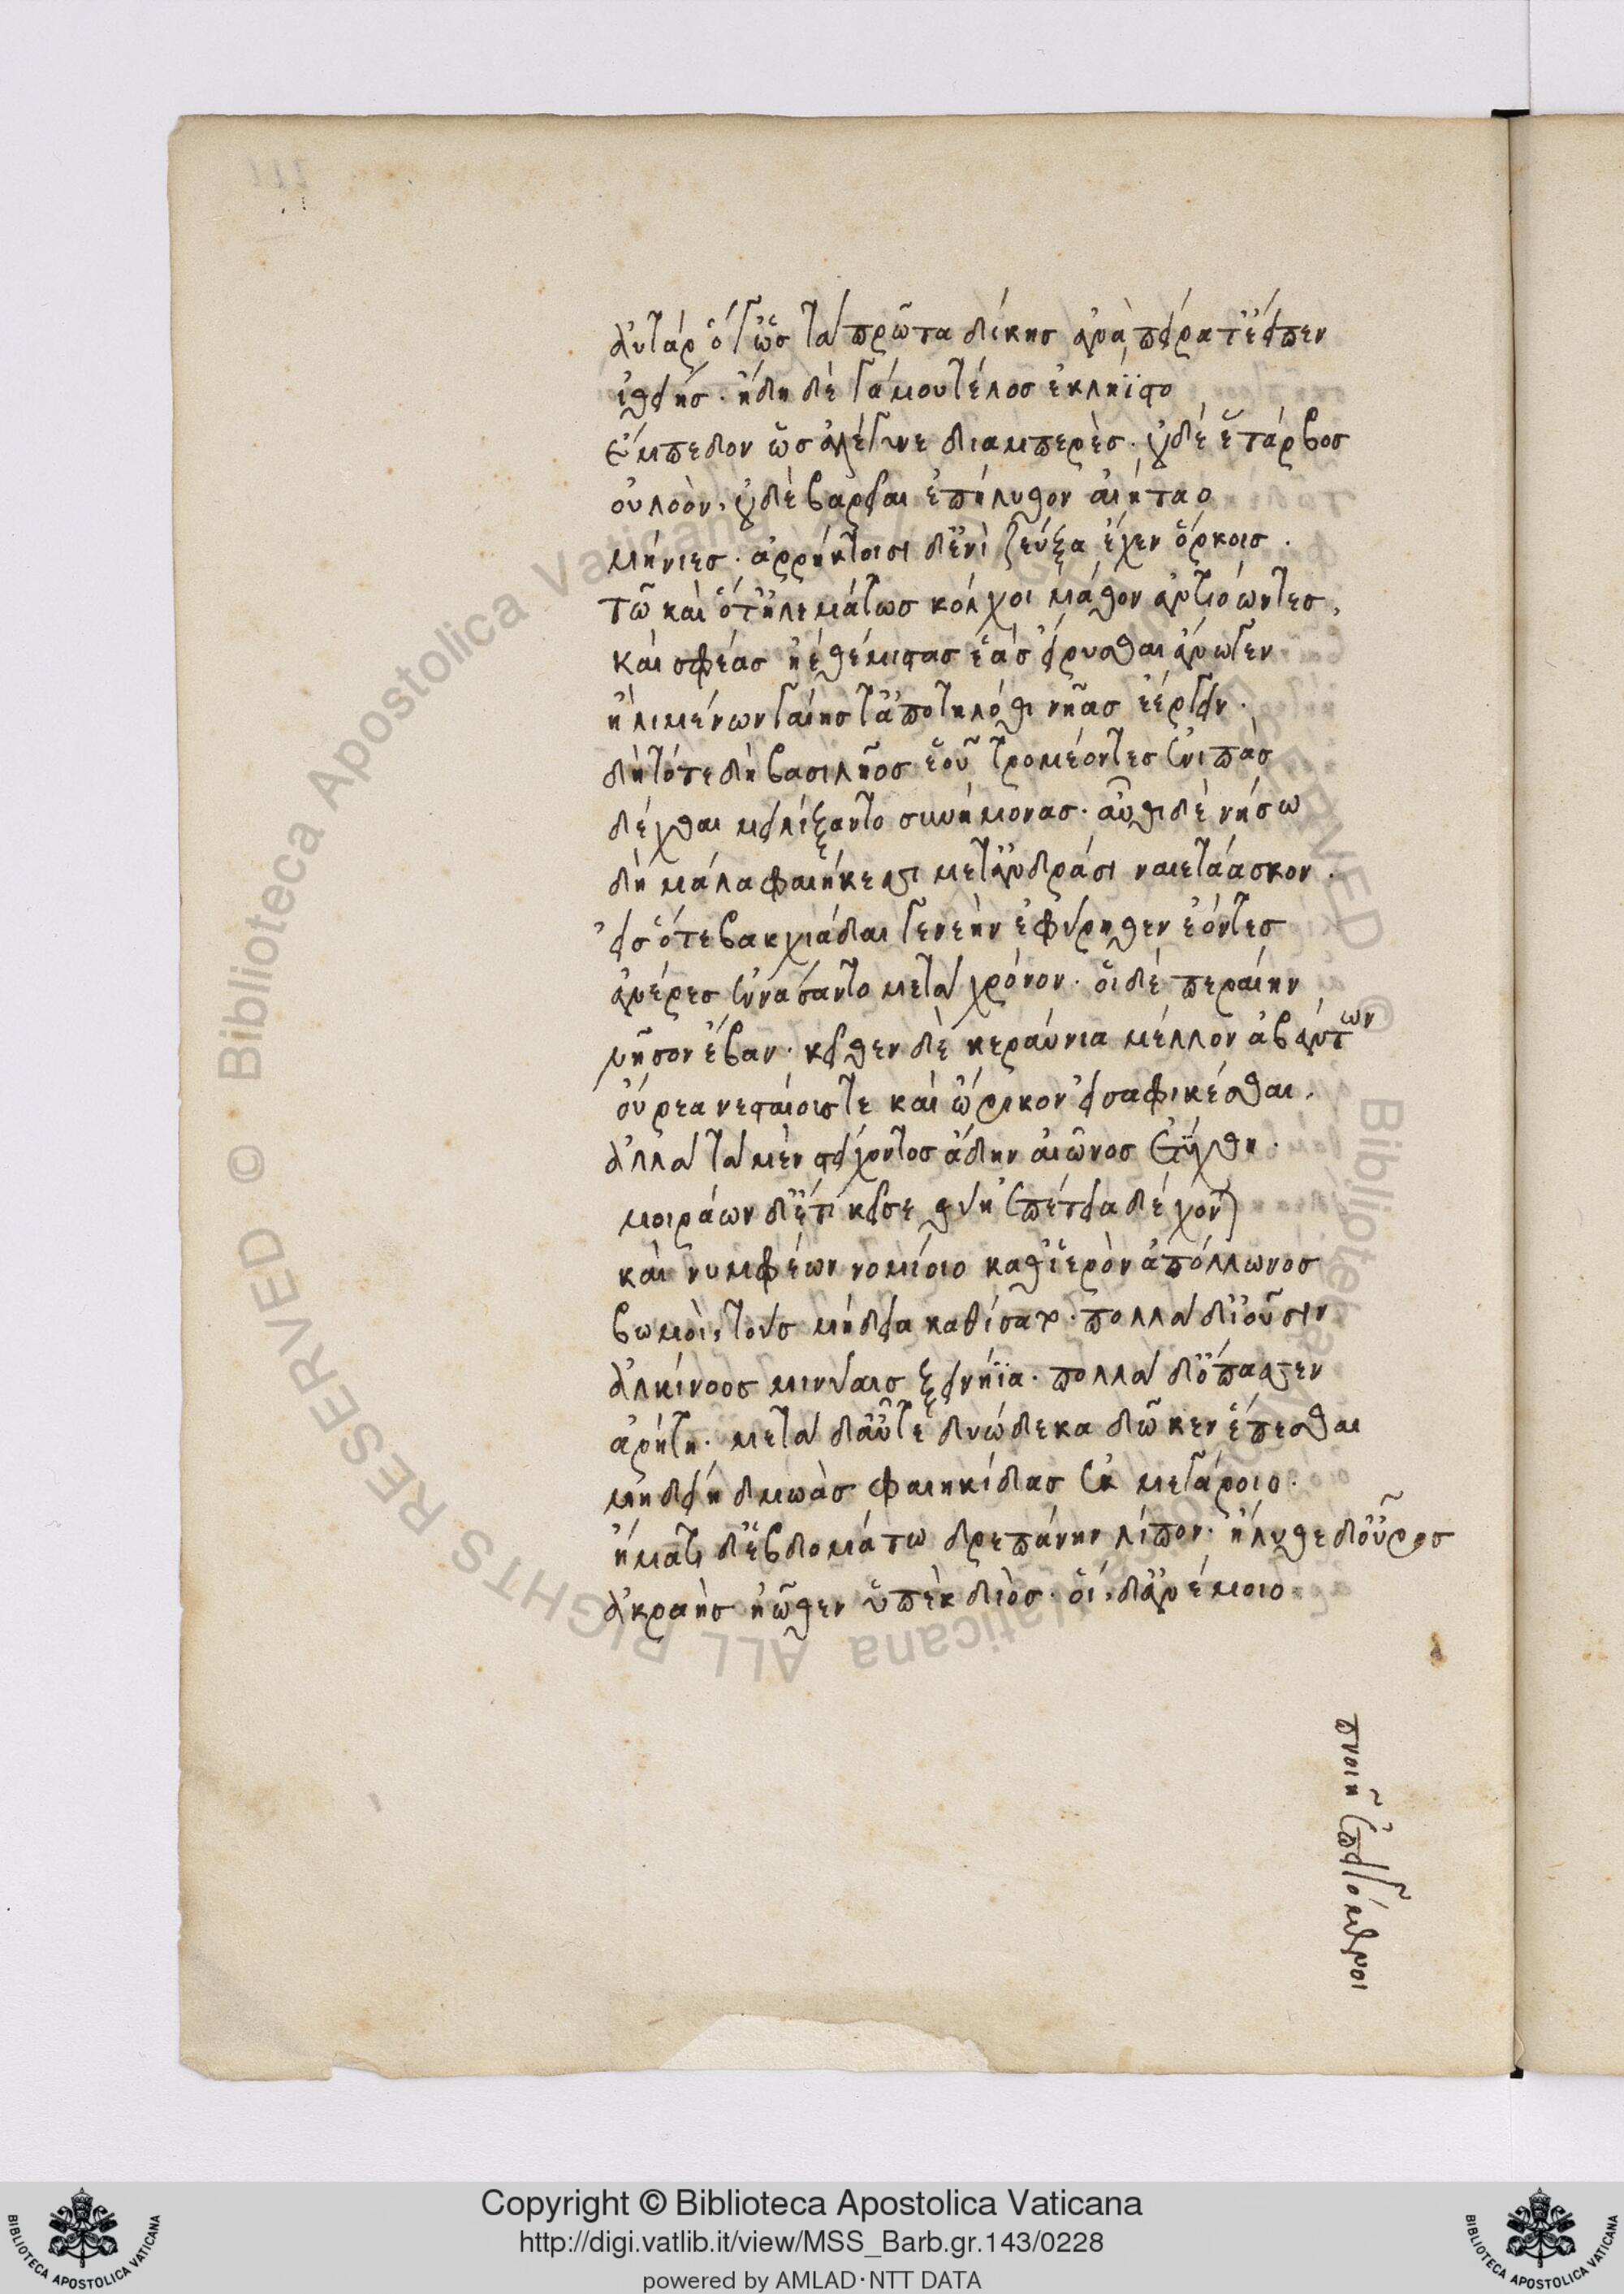 αὐτὰρ ὅγ' ὡς τὰ πρῶτα δίκης ἀνὰ πείρατ' ἔειπεν
ἰθείης. ἤδη δὲ γάμου τέλος ἐκλήϊστο
ἔμπεδον ὣς ἀλέγυνε διαμπερὲς. οὐδέ ἑ τάρβος
οὐλοὸν, οὐδὲ βαρεῖαι ἐπήλυθον αἰήταο
μήνιες. ἀρρήκτοισι δ' ἐνὶ ζεύξας ἔχεν ὅρκοις.
τῶ καὶ ὅτ' ἠλεμάτως κόλχοι μάθον ἀντιόωντες,
καὶ σφέας ἠὲ θέμιστας ἑὰς εἴρυσθαι ἄνωγεν
ἢ λιμένων γαίης τ' ἀποτηλόθι νῆας ἐέργειν.
δὴ τότε δὴ βασιλῆος ἑοῦ τρομέοντες ἐνιπὰς
δέχθαι μειλίξαντο συνήμονας. αὖθι δὲ νήσω
δὴ μάλα φαιήκεσσι μετ' ἀνδράσι ναιετάασκον.
εἰς ὅτε βακχιάδαι γενεὴν ἐφύρηθεν ἐόντες
ἀνέρες ἐννάσαντο μετὰ χρόνον. οἱ δὲ περαίην
νῆσον ἔβαν. κεῖθεν δὲ κεραύνια μέλλον ἀβάντων
οὔρεα νεσταίοις τε καὶ ὤρικον εἰσαφικέσθαι.
ἀλλὰ τὰ μὲν στείχοντος ἄδην αἰῶνος ἐτύχθη.
μοιράων δ' ἔτι κεῖσε θύη ἐπέτεια δέχονται
καὶ νυμφέων νομίοιο καθ' ἱερὸν ἀπόλλωνος
βωμοὶ, τοὺς μήδεια καθίσατο. πολλὰ δ' ἰοῦσιν
ἀλκίνοος μινύαις ξεινήϊα. πολλὰ δ' ὄπασσεν
ἀρήτη. μετὰ δ' αὖτε δυώδεκα δῶκεν ἕπεσθαι
μηδείη δμωὰς φαιηκίδας ἐκ μεγάροιο.
ἤματι δ' ἑβδομάτω δρεπάνην λίπον. ἤλυθε δ' οὖρος
ἀκραὴς ἠῶθεν ὑπὲκ διὸς. οἱ, δ' ἀνέμοιο
πνοιῆ ἐπειγόμενοι
Copyright © Biblioteca Apostolica Vaticana
http://digi.vatlib.it/view/MSS_Barb.gr.143/0228
powered by AMLAD·NTT DATA